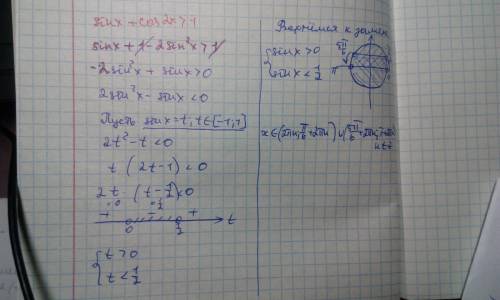 sinx + cos2x > 1
sinx + 1 - 2sin²x > 1
-2sin²x + sinx > 0
2sin²x - sinx < 0
Пусть sinx = t, t∈[-1, 1]
2t² - t < 0
t (2t-1) < 0
2t (t - 1/2) < 0
+ - + t
0 1/2
{ t > 0
{ t < 1/2
Вернёмся к замене
{ sinx > 0
{ sinx < 1/2
5π/6
π
x∈(2πn; π/6 + 2πn) ∪ (5π/6 + 2πn; π + 2πn)
n∈z